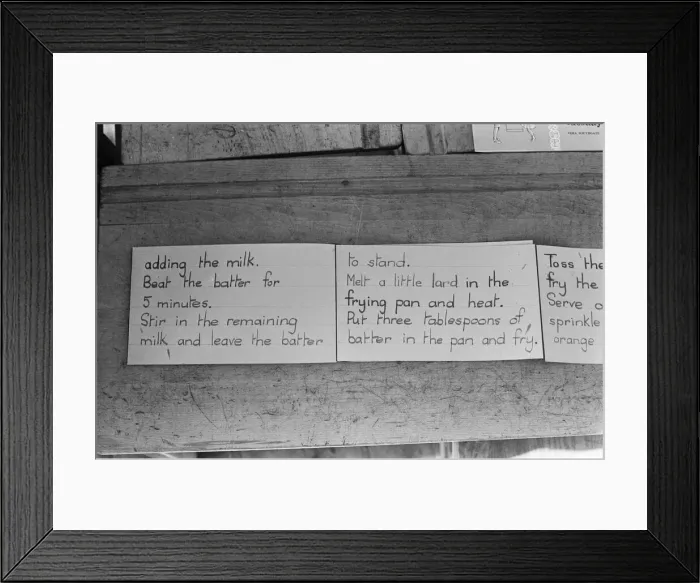 adding the milk.
Beat the batter for
5 minutes.
Stir in the remaining
milk and leave the batter
to stand.
Melt a little lard in the
frying pan and heat.
Put three tablespoons of
batter in the pan and fry.
Toss the
fry the
Serve
sprinkle
orange